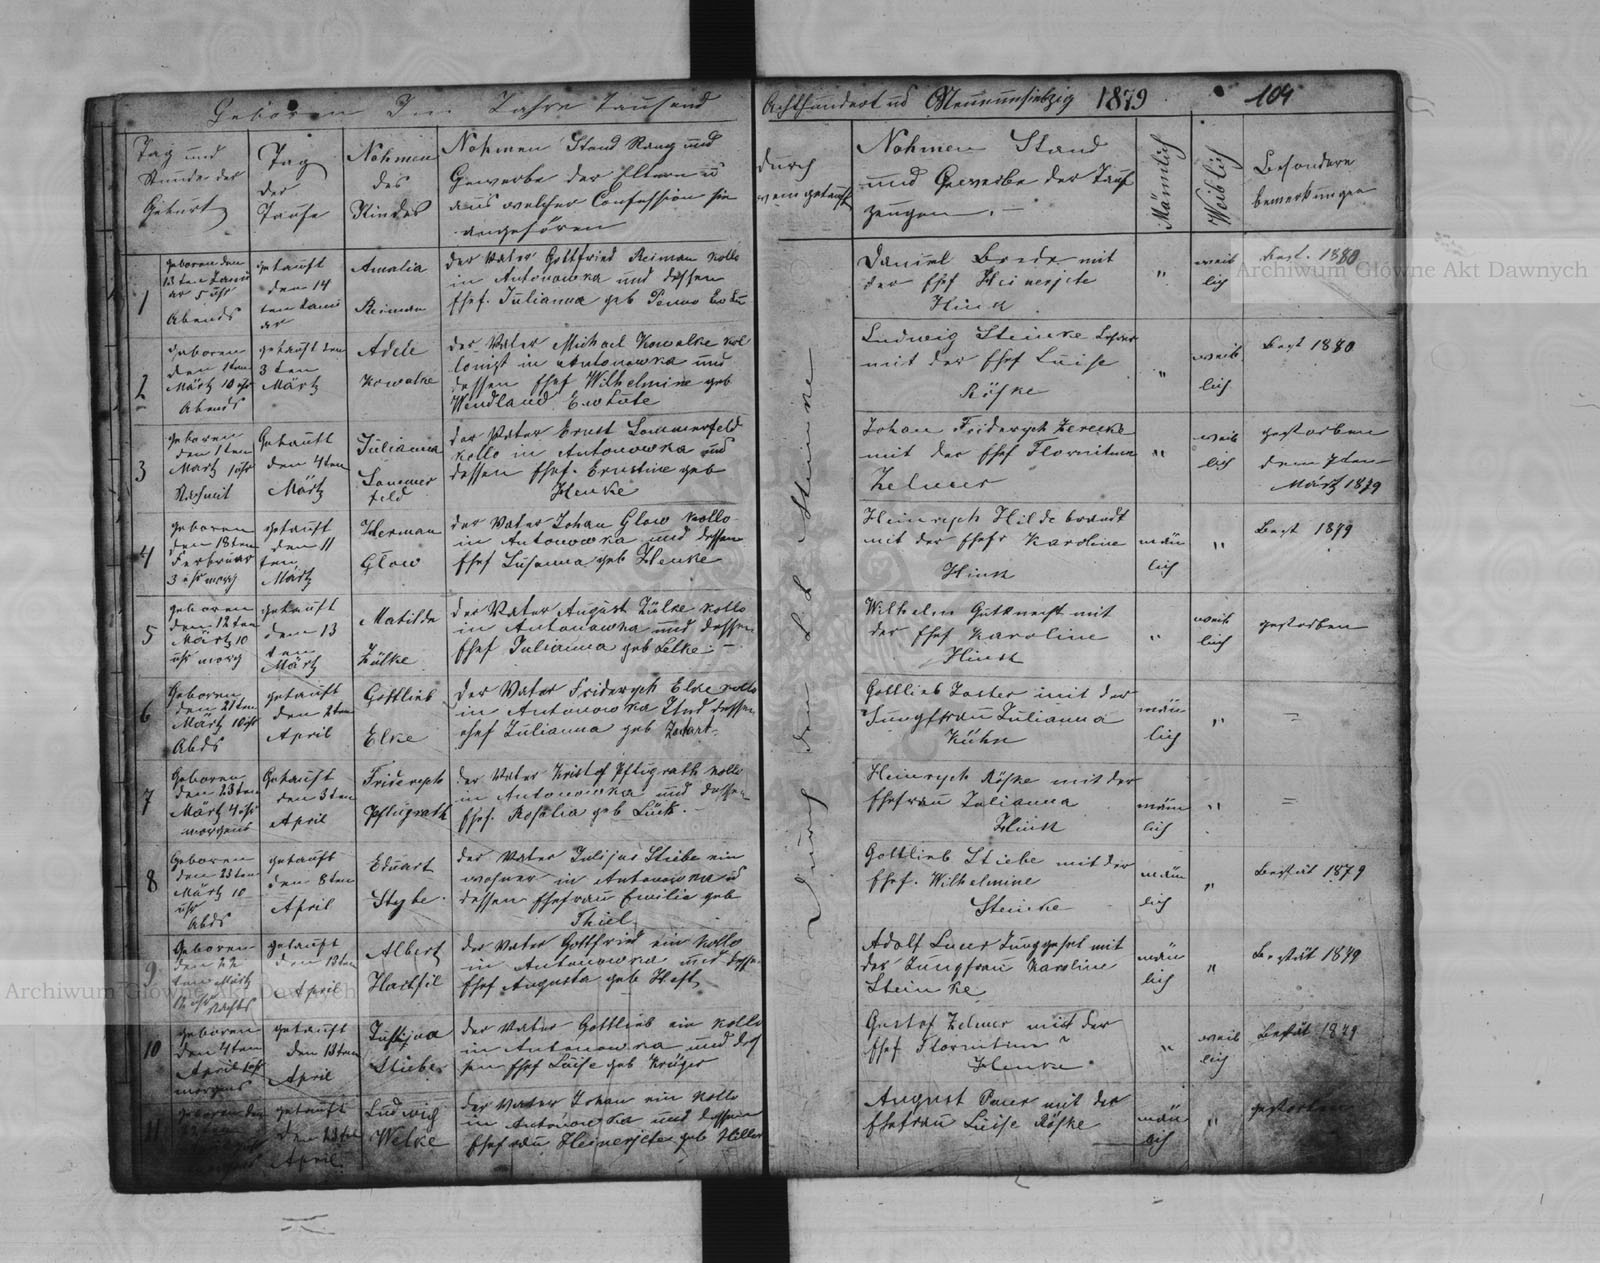 Geboren Im Jahre Tausend
Achthundert ud Neununsiebzig 1879
104
Tag und
Stunde der
Geburt
Tag
der
Taufe
Nahmen
des
Kindes
Nahmen Stand Rang und
Gewerbe der Eltern ud
aus welcher Confession sie
angehören
durch
wem getauft
Nahmen Stand
und Gewerbe der Tauf
zeugen.
Mänlich
Weiblich
Besondere
bemerkungen
1
geboren den
13 ten Janu
ar 5 uhr
Abends
getauft
den 14
ten Janu
ar
Amalia
Reiman
der Vater Gottfried Reiman Kollo
in Antonowka und dessen
Ehef. Julianna geb
Daniel Brede mit
der Ehef Heinerjete
Hink
"
weib
lich
Best. 1880
2
geboren
den 1ten
Märtz 10 uhr
Abends
getauft den
3 ten
Märtz
Adele
Kowalke
der Vater Michael Kowalke Kol
lonist in Antonowka und
dessen Ehef Wilhelmine geb
Wendland
Ludwig Steinke
mit der Ehef Luise
Röske
"
weib
lich
Best 1880
3
geboren
den 1ten
Märtz 1 uhr
Nachmit
Getauft
den 4ten
Märtz
Julianna
Sommer
feld
der Vater Ernst Sommerfeld
Kollo in Antonowka und
dessen Ehef. Ernstine geb
Henke
Johan Friderych
mit der Ehef Florentine
Zelmer
"
weib
lich
gestorben
den 7ten
Märtz 1879
4
geboren
den 18ten
Februar
3 uhr morg
getauft
den 11
ten
Märtz
Herman
Glow
der Vater Johan Glow Kollo
in Antonowka und dessen
Ehef Susanna geb Henke
Heinrych Hildebrandt
mit der Ehefr Karoline
Hink
män
lich
"
Best 1879
5
geboren
den 12ten
Märtz 10
uhr morg
getauft
den 13
ten
Märtz
Matilde
Zülke
der Vater August Zülke Kollo
in Antonowka und dessen
Ehef Julianna geb Lelke
Wilhelm Gutknecht mit
der Ehef Karoline
Hink
"
weib
lich
gestorben
6
Geboren
den 21ten
Märtz 10 uhr
Abds
getauft
den 2ten
April
Gottlieb
Elke
der Vater Friderych Elke Kollo
in Antonowka Und dessen
ehef Julianna geb
Gottlieb Zaster mit der
Jungfrau Julianna
Kühn
män
lich
"
=
7
Geboren
den 23ten
Märtz 4 uhr
morgens
Getauft
den 3ten
April
Friderych
Pflugrath
der Vater Kristof Pflugrath Kollo
in Antonowka und dessen
Ehef. Rosalia geb Lück.
Heinrych Röske mit der
Ehefrau Julianna
Hink
män
lich
"
=
8
Geboren
den 23ten
Märtz 10
uhr
Abds
getauft
den 8ten
April
Eduart
Stybe.
der Vater Julijus Stiebe ein
wohner in Antonowka ud
dessen Ehefrau Emilie geb
Thiel
Gottlieb Stiebe mit der
Ehef. Wilhelmine
Steinke
män
lich
"
Bestät 1879
9
Geboren
den 22
ten Märtz
uhr
Nachts
getauft
den 13ten
April
Albert
Hartfil
der Vater Gottfried ein Kollo
in Antonowka und desse
Ehef Augusta geb Heft
Adolf Luer Junggesel mit
der Jungfrau Karoline
Steinke
män
lich
"
Bestät 1879
10
geboren
den 4ten
April uhr
morgens
getauft
den 13ten
April
Justijna
Stiebe
der Vater Gottlieb ein Kollo
in Antonowka und des
sen Ehef Luise geb Krüger
Gustof Zelmer mit der
Ehef Florentine
Henke
"
weib
lich
Bestät 1879
11
geboren den
getauft
den 13ten
April
Ludwig
Welke
der Vater Johan ein Kollo
in Antonowka und dessen
Ehefrau Heinerjete geb Hiller
August Pauer mit der
Ehefrau Luise Röske
män
lich
"
gestorben
Durch den L L Steinke
Archiwum Główne Akt Dawnych
Archiwum Główne Akt Dawnych